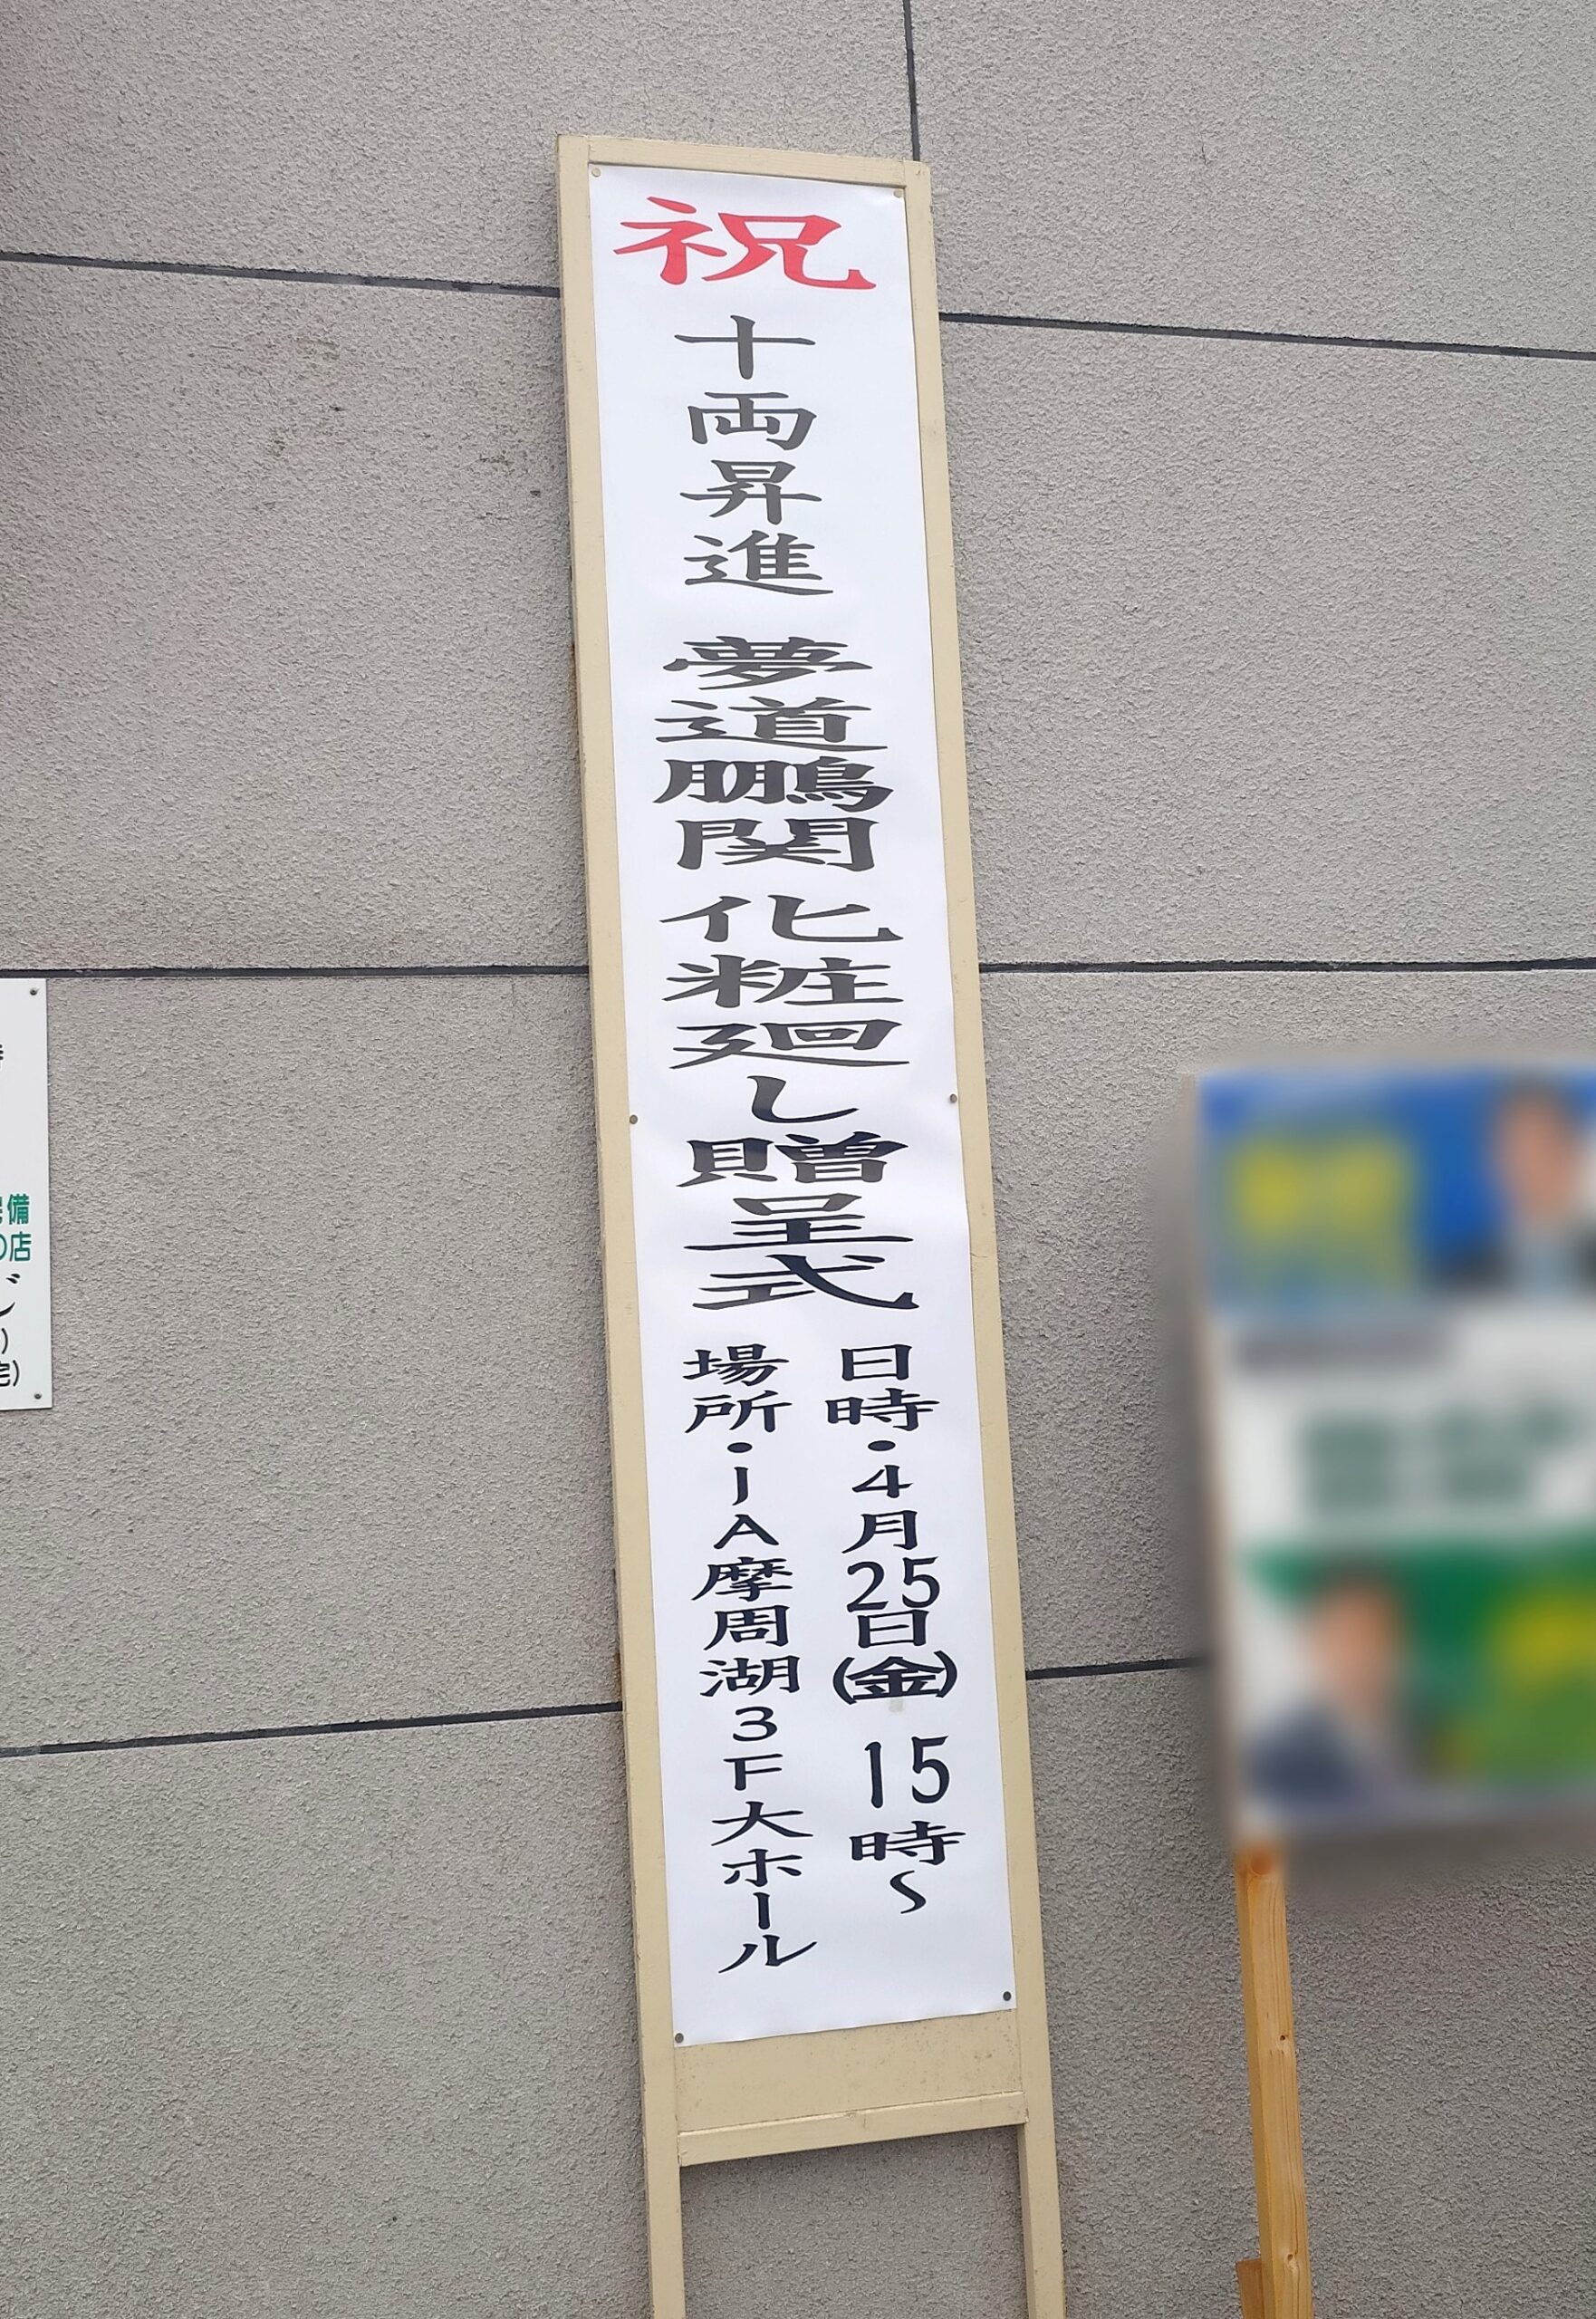 祝
十両昇進 夢道鵬関 化粧廻し贈呈式
日時・4月25日(金) 15時～
場所・JA摩周湖3F大ホール
備
の店